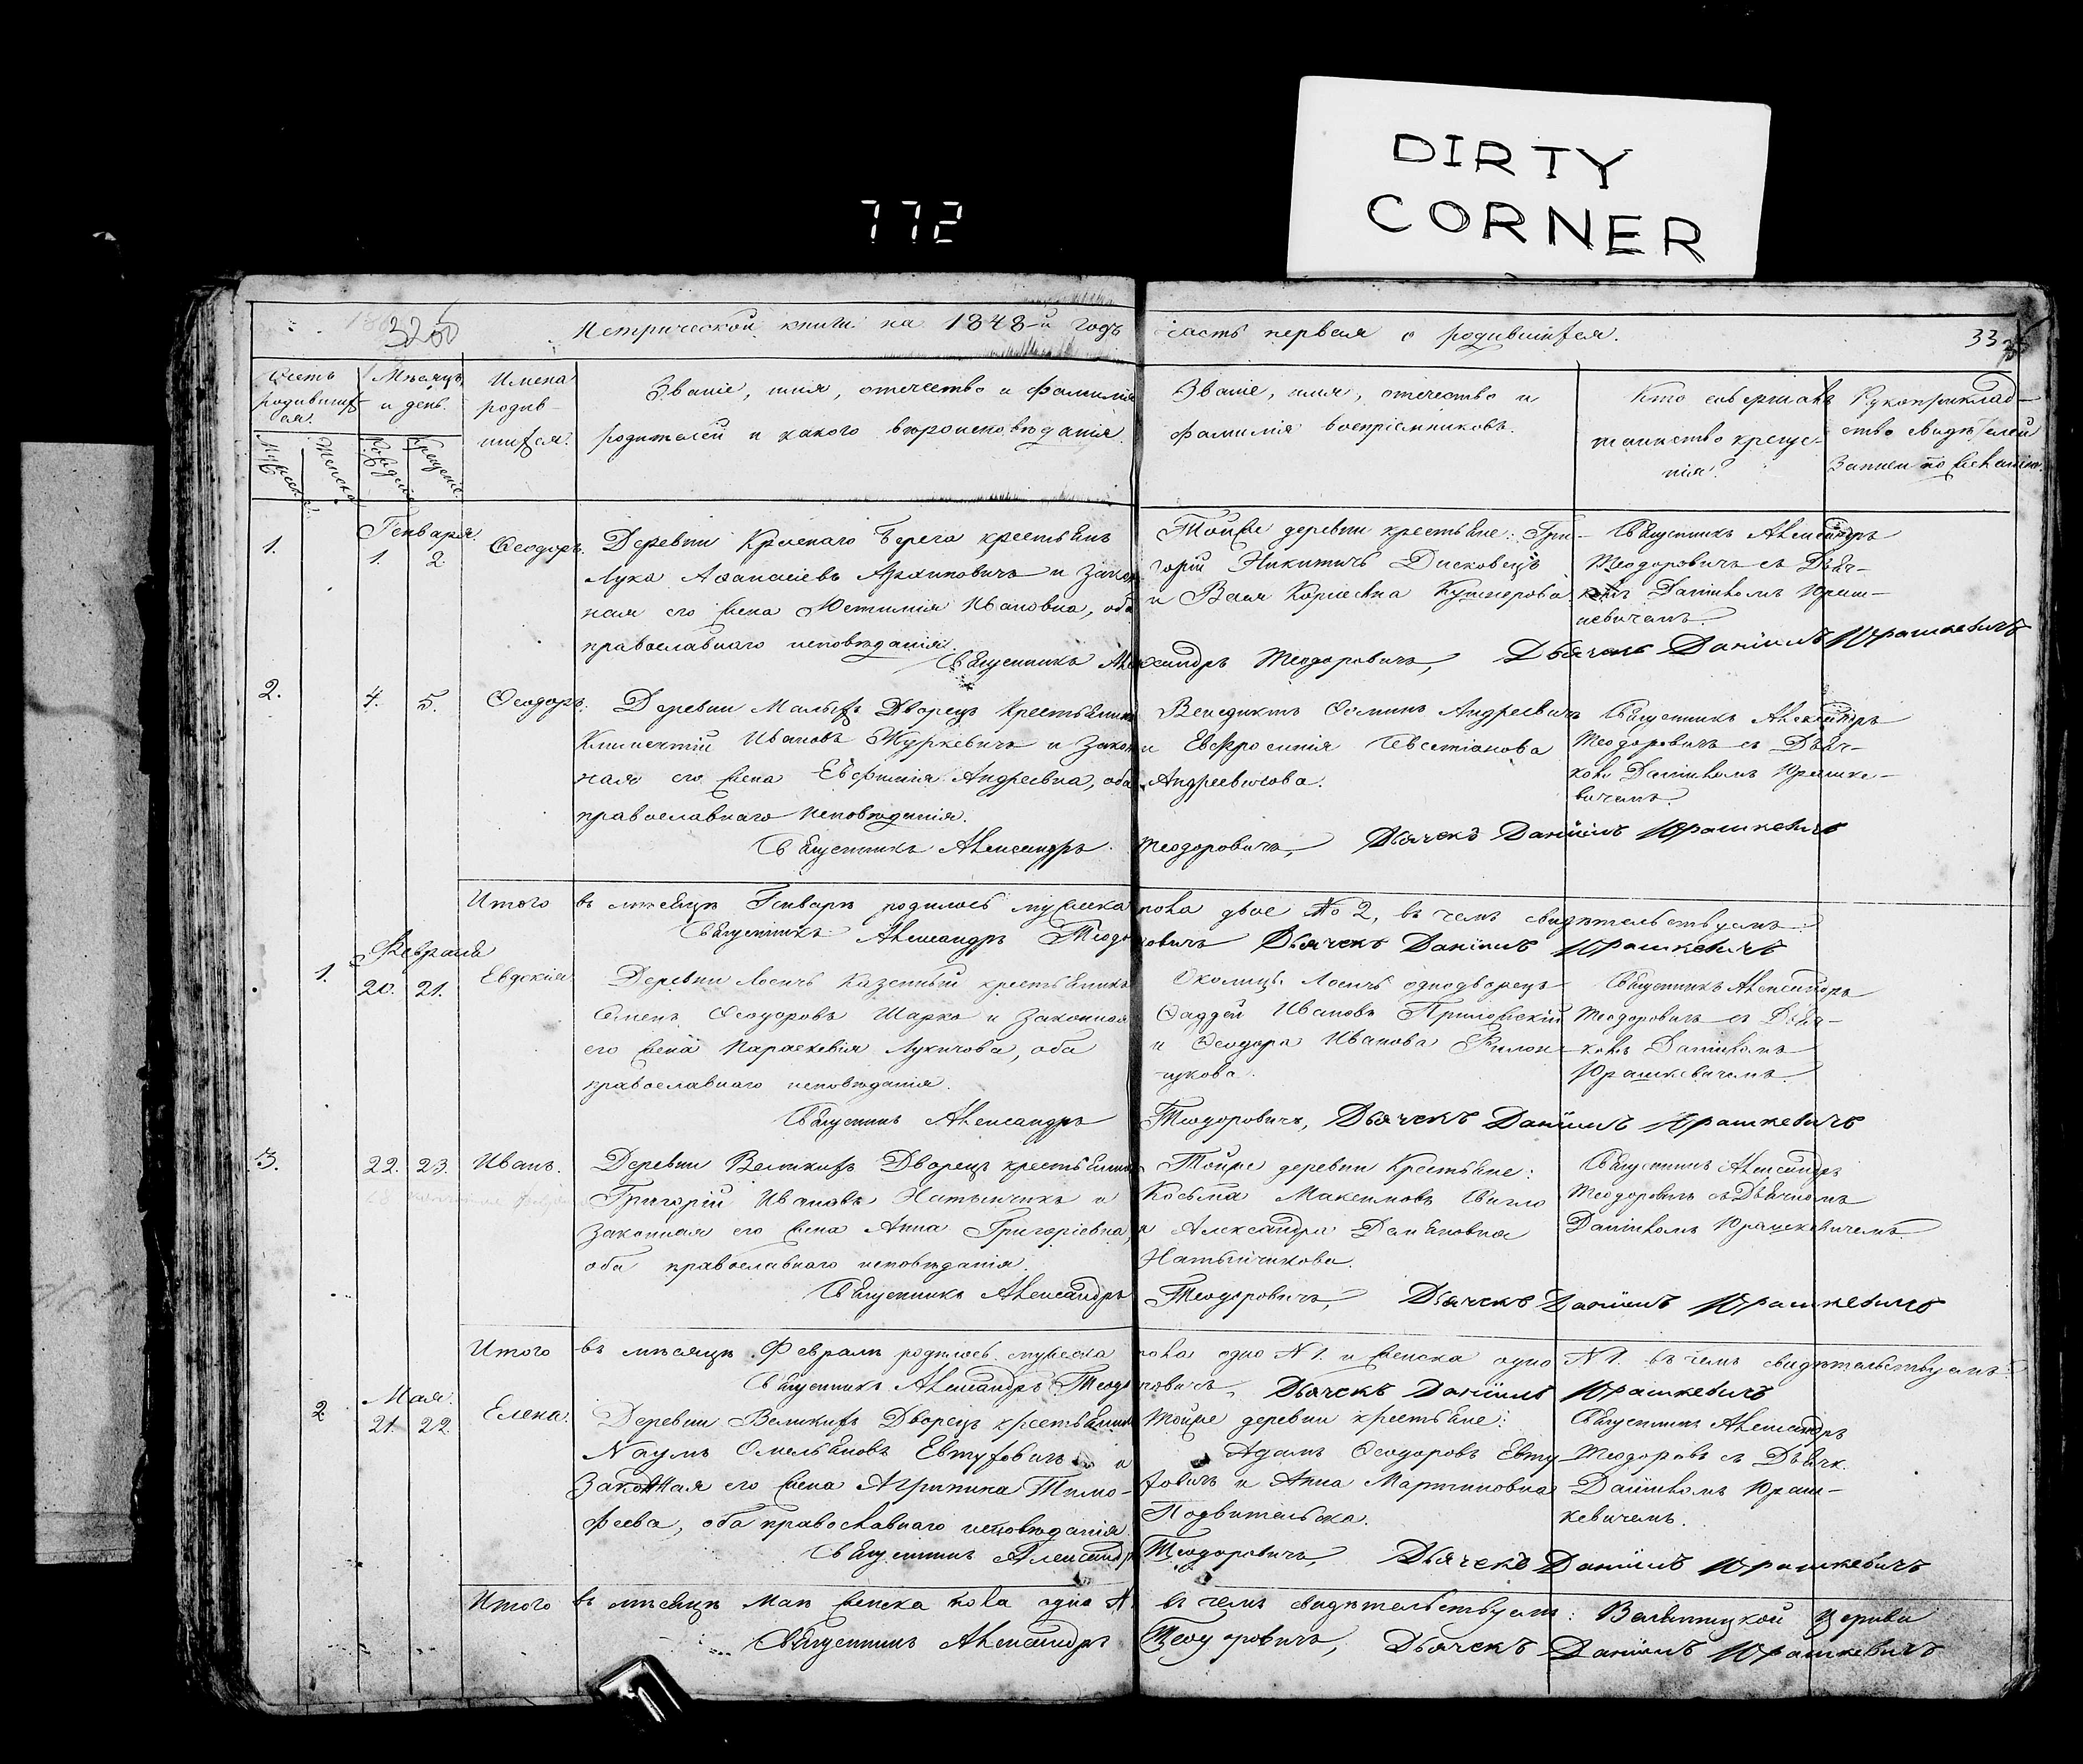 DIRTY
CORNER
772
Метрической книги на 1848-й годъ часть первая о родившихся.
33
Мѣсяцъ и день.
Имена родившихся.
Званіе, имя, отечество и фамилія
родителей и какого вѣроисповѣданія.
Званіе, имя, отечество и
фамилія воспріемниковъ.
Кто совершалъ
таинство крещенія?
Рукоприкладство свидѣтелей
записи по желанію.
Генваря
1. 1. 2. Ѳеодоръ.
Деревни Краснаго Берега крестьянъ
Лука Аѳанасіевъ и законная его жена Ивановна, оба
православнаго исповѣданія.
Тойже деревни крестьяне: Григорій Никитичъ
Священникъ Александръ
Теодоровичъ съ
Даніиломъ Юрашкевичемъ.
Священникъ Александръ Теодоровичъ, Дьячекъ Даніилъ Юрашкевичъ
2. 4. 5. Ѳеодоръ.
Деревни Малыхъ Дворецъ крестьянинъ
Ивановъ Журкевичъ и законная его жена Евфимія Андреевна, оба
православнаго исповѣданія.
Венедиктъ Андреевичъ
и Евфросинія
Андреевичова.
Священникъ Александръ
Теодоровичъ съ
Даніиломъ Юрашкевичемъ.
Священникъ Александръ Теодоровичъ, Дьячекъ Даніилъ Юрашкевичъ
Итого въ мѣсяцѣ Генварѣ родилось мужеска пола двое № 2, въ чемъ свидѣтельствуемъ:
Священникъ Александръ Теодоровичъ Дьячекъ Даніилъ Юрашкевичъ
Февраля
1. 20. 21. Евдокія
Деревни Лосичъ казенный крестьянинъ
Семенъ Ѳеодоровъ Шарко и законная
его жена Параскевія Лукичова, оба
православнаго исповѣданія.
Околицы Лосичъ однодворецъ
Ѳаддей Ивановъ
и Ѳеодора Иванова
Священникъ Александръ
Теодоровичъ съ
Даніиломъ
Юрашкевичемъ.
Священникъ Александръ Теодоровичъ, Дьячекъ Даніилъ Юрашкевичъ
3. 22. 23. Иванъ.
Деревни Великихъ Дворецъ крестьянинъ
Григорій Ивановъ Натынчикъ и
законная его жена Анна Григоріевна,
оба православнаго исповѣданія.
Тойже деревни крестьяне:
Косьма Максимовъ
и Александра Демьяновна
Натынчикова.
Священникъ Александръ
Теодоровичъ съ Дьячкомъ
Даніиломъ Юрашкевичемъ
Священникъ Александръ Теодоровичъ, Дьячекъ Даніилъ Юрашкевичъ
Итого въ мѣсяцѣ Февралѣ родилось мужеска пола одно № 1. и женска одно № 1. въ чемъ свидѣтельствуемъ:
Священникъ Александръ Теодоровичъ, Дьячекъ Даніилъ Юрашкевичъ
Мая
2 21. 22. Елена.
Деревни Великихъ Дворецъ крестьянинъ
Наумъ Омельяновъ Евтуховичъ и
законная его жена Агрипина Тимофеева, оба православнаго исповѣданія.
Тойже деревни крестьяне:
Адамъ Ѳеодоровъ Евтуховичъ и Анна Мартиновна
Священникъ Александръ
Теодоровъ съ Дьячк.
Даніиломъ Юрашкевичемъ.
Священникъ Александръ Теодоровичъ, Дьячекъ Даніилъ Юрашкевичъ
Итого въ мѣсяцѣ Маѣ женска пола одно въ чемъ свидѣтельствуемъ: церкви
Священникъ Александръ Теодоровичъ, Дьячекъ Даніилъ Юрашкевичъ